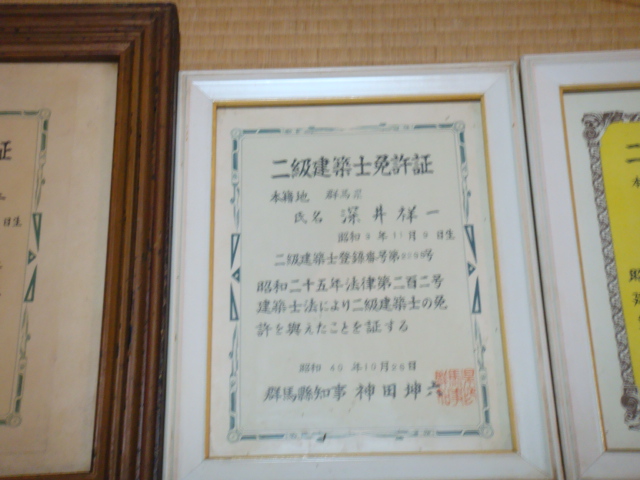 証
日生
二級建築士免許証
本籍地 群馬県
氏名 深井祥一
昭和 9 年 11 月 9 日生
二級建築士登録番号第 号
昭和二十五年法律第二百二号
建築士法により二級建築士の免
許を與えたことを証する
昭和 40 年 10 月 日
群馬縣知事 神田坤六
二